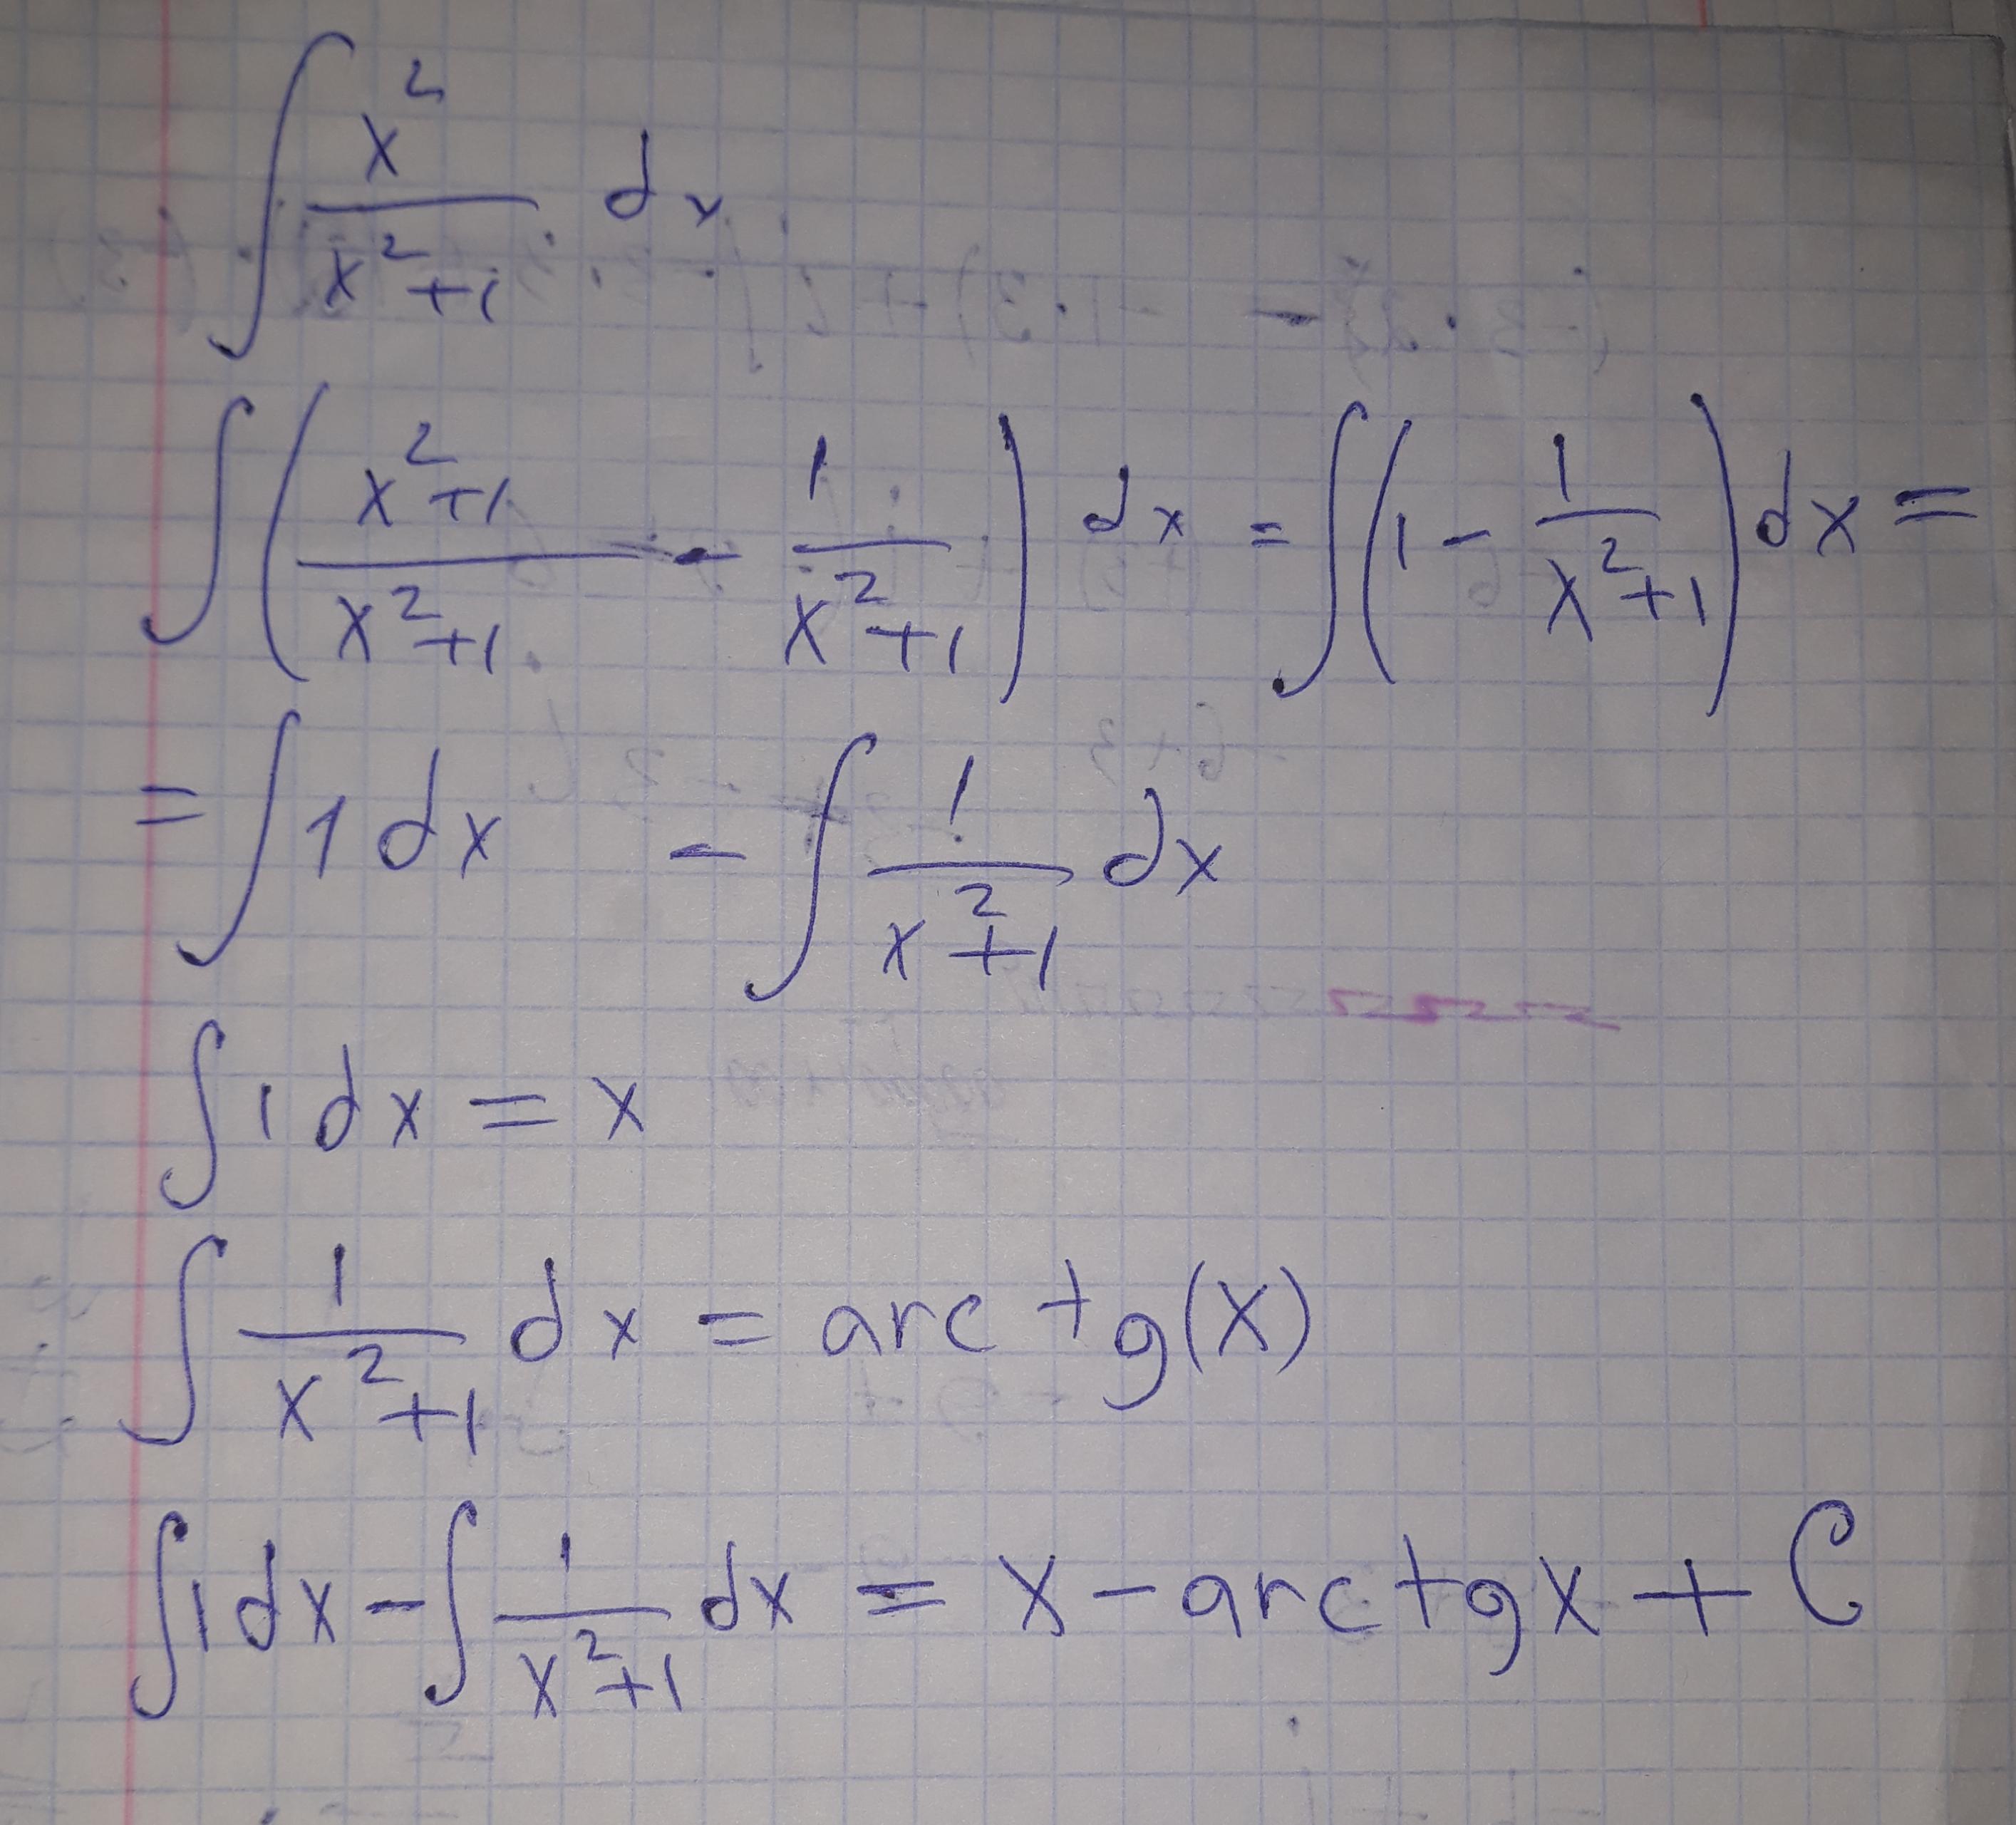 ∫ x²/(x²+1) dx
∫ ((x²+1)/(x²+1) - 1/(x²+1)) dx = ∫ (1 - 1/(x²+1)) dx =
= ∫ 1 dx - ∫ 1/(x²+1) dx
∫ 1 dx = x
∫ 1/(x²+1) dx = arc tg(x)
∫ 1 dx - ∫ 1/(x²+1) dx = x - arctgx + C